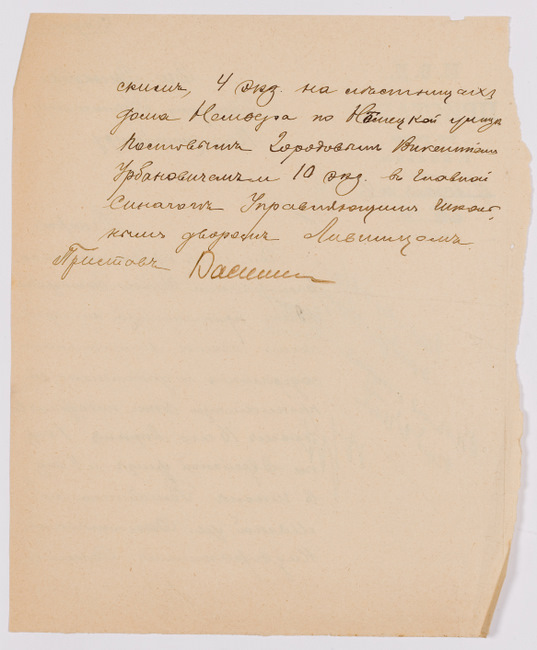 скимъ, 4 экз. на лѣстницахъ
дома Немзера по Нѣмецкой улицѣ
Постовымъ Городовымъ Викентіемъ
Урбановичемъ и 10 экз. въ главной
Синагогѣ Управляющимъ школь-
нымъ дворомъ Лившицомъ.
Приставъ